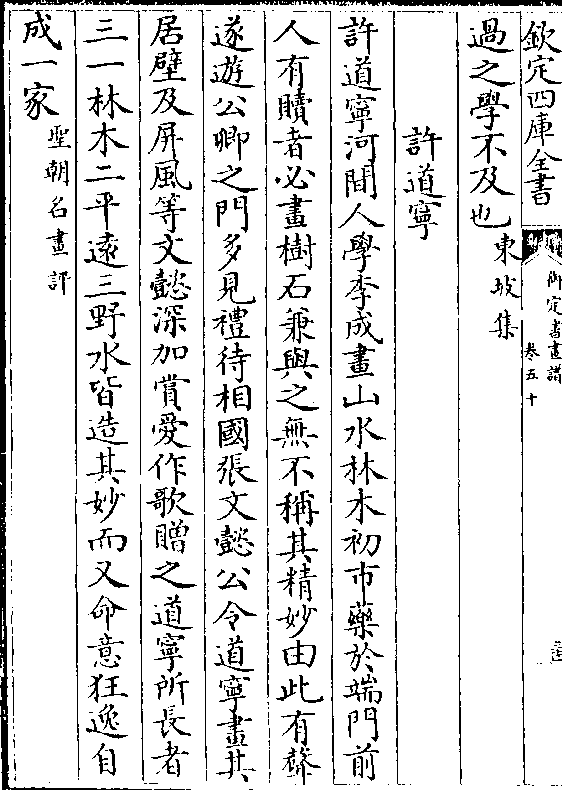 欽定四庫全書
御定書畫譜
卷五十
過之學不及也東坡集
許道寧
許道寧河間人學李成畫山水林木初市藥於端門前
人有贖者必畫樹石兼與之無不稱其精妙由此有聲
遂遊公卿之門多見禮待相國張文懿公令道寧畫其
居壁及屏風等文懿深加賞愛作歌贈之道寧所長者
三一林木二平遠三野水皆造其妙而又命意狂逸自
成一家聖朝名畫評